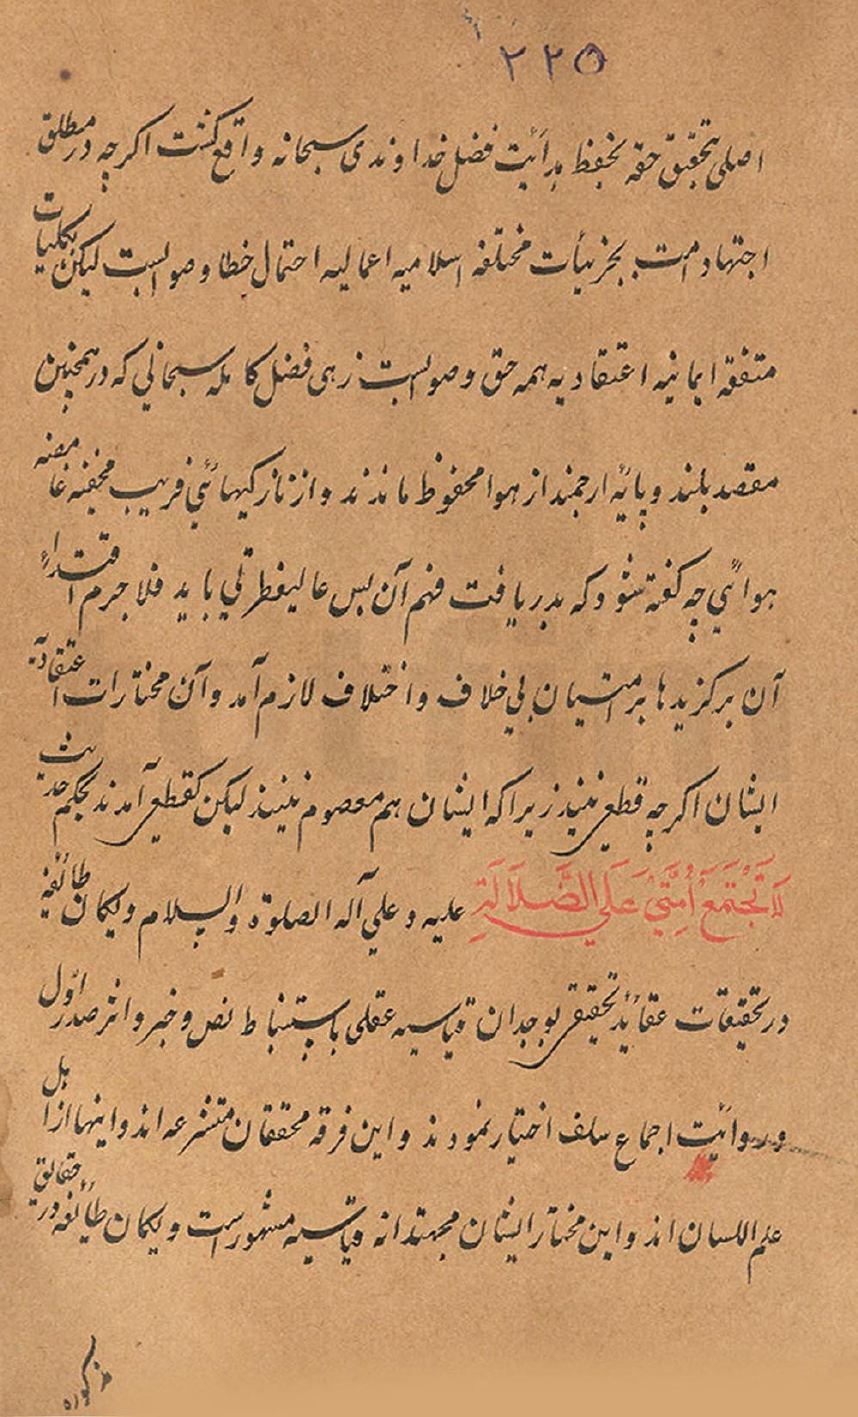 ٢٢٥
اصلی بتحقیق حقه بحفظ هدائت فضل خداوندی سبحانه واقع کشت اکرچه در مطلق
اجتهاد امت بجزئیات مختلفه اسلامیه اعمالیه احتمال خطا و صوابست لیکن بکلیات
متفقه ایمانیه اعتقادیه همه حق و صوابست زهی فضل کامله سبحانی که در همچنین
مقصد بلند و پائیه ارجمند از هوا محفوظ ماندند و از نازکیهائی فریب مخفیه غامضه
هوائی چه کفته شود که بدریافت فهم آن بس عالیفطرتی باید فلاجرم اقتداء
آن برکزیدها بر امتیان بی خلاف و اختلاف لازم آمد و آن مختارات اعتقادیه
ایشان اکرچه قطعی نیند زیرا که ایشان هم معصوم نیند لیکن کقطعی آمدند بحکم حدیث
لَا تَجْتَمَعُ اُمَّتِیْ عَلَی الضَّلَالَةِ علیه و علی آله الصلوة والسلام و یکان طائفه
در تحقیقات عقائد تحقیقی بوجدان قیاسیه عقلی باستنباط نص و خبر و اثر صدر اوّل
و روائیت اجماع سلف اختیار نمودند و این فرقه محققان متشرعه اند و اینها از اهل
علم اللسان اند و این مختار ایشان مجتهدانه قیاسیه مشهور است و یکان طائفه در حقائق
مذکوره